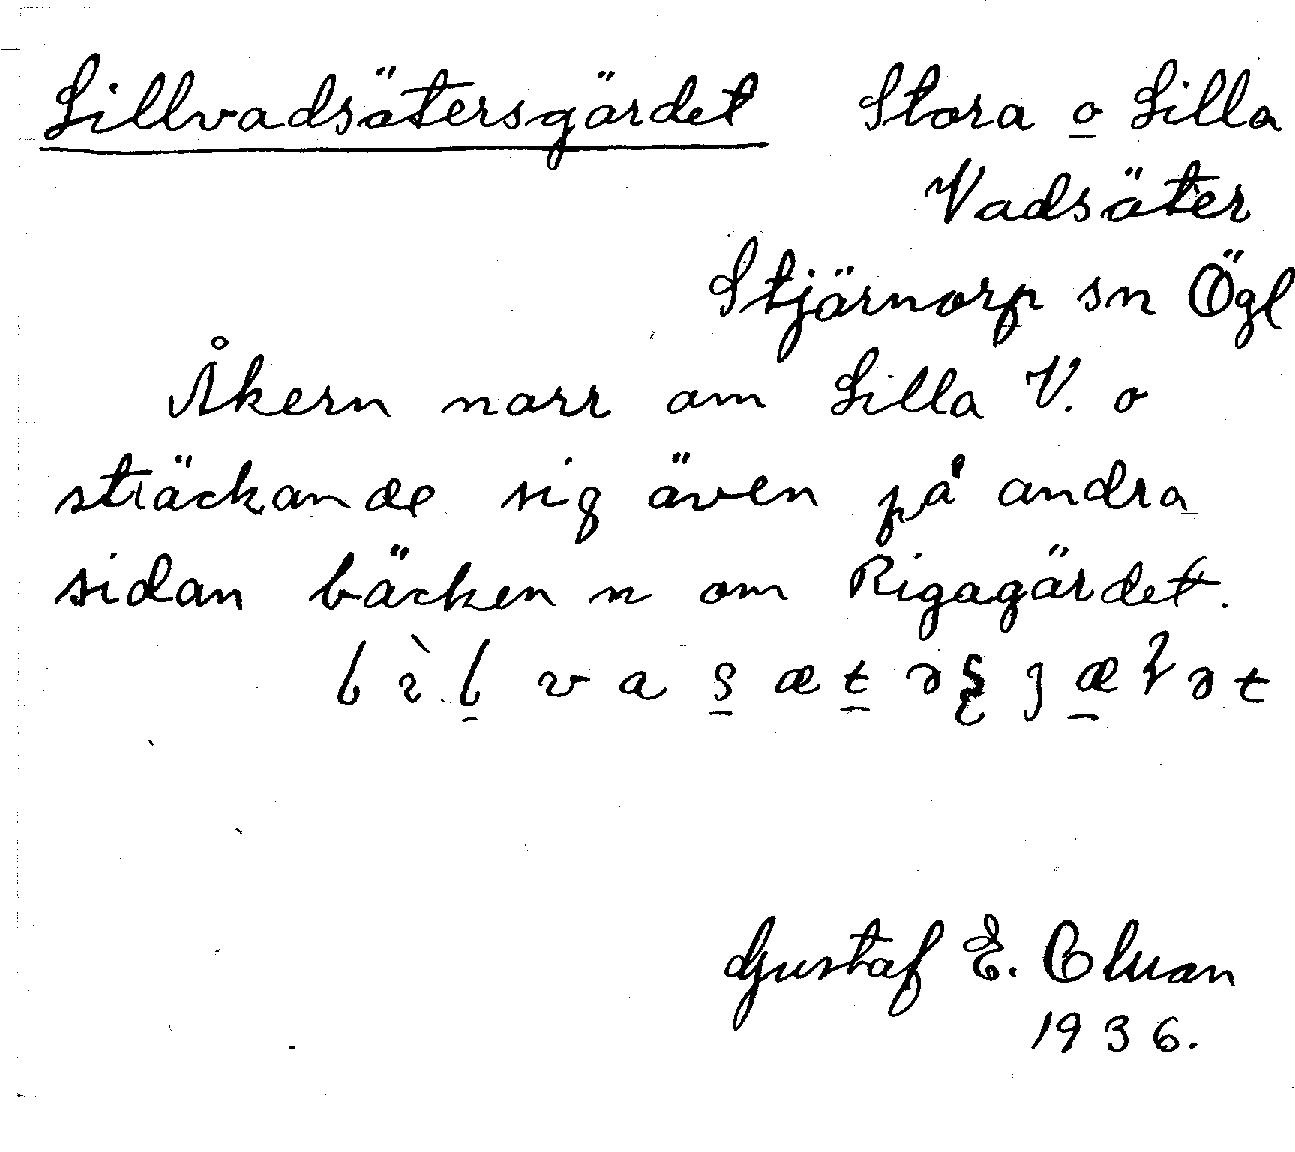 Lillvadsätersgärdet Stora o Lilla
Vadsäter
Stjärnorp sn Ögl
Åkern norr om Lilla V. o
sträckande sig även på andra
sidan bäcken n om Rigagärdet.
Gustaf E.
1936.